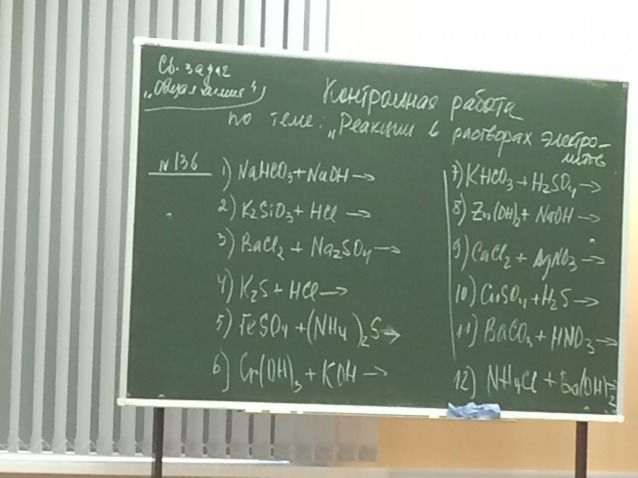 Сб. задач
"Общая химия"
Контрольная работа
по теме: "Реакции в растворах электро-
литов
№136
1) NaHCO3 + NaOH →
2) K2SiO3 + HCl →
3) BaCl2 + Na2SO4 →
4) K2S + HCl →
5) FeSO4 + (NH4)2S →
6) Cr(OH)3 + KOH →
7) KHCO3 + H2SO4 →
8) Zn(OH)2 + NaOH →
9) CaCl2 + AgNO3 →
10) CuSO4 + H2S →
11) BaCO3 + HNO3 →
12) NH4Cl + Ba(OH)2 →